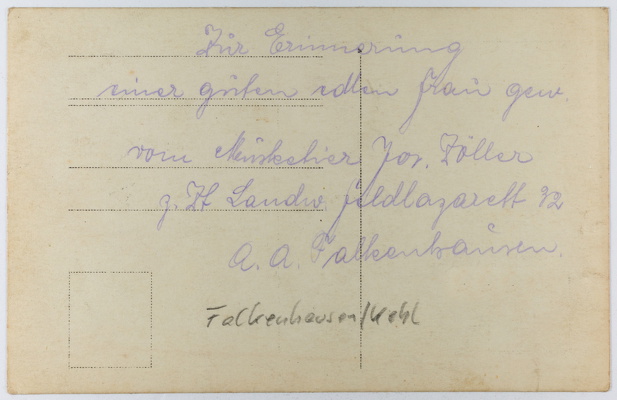 Zur Erinnerung
einer guten edlen Frau gew.
vom Musketier Jos. Zöller
z. Zt Landw. Feldlazarett 32
A. A. Falkenhausen.
Falkenhausen/Kehl